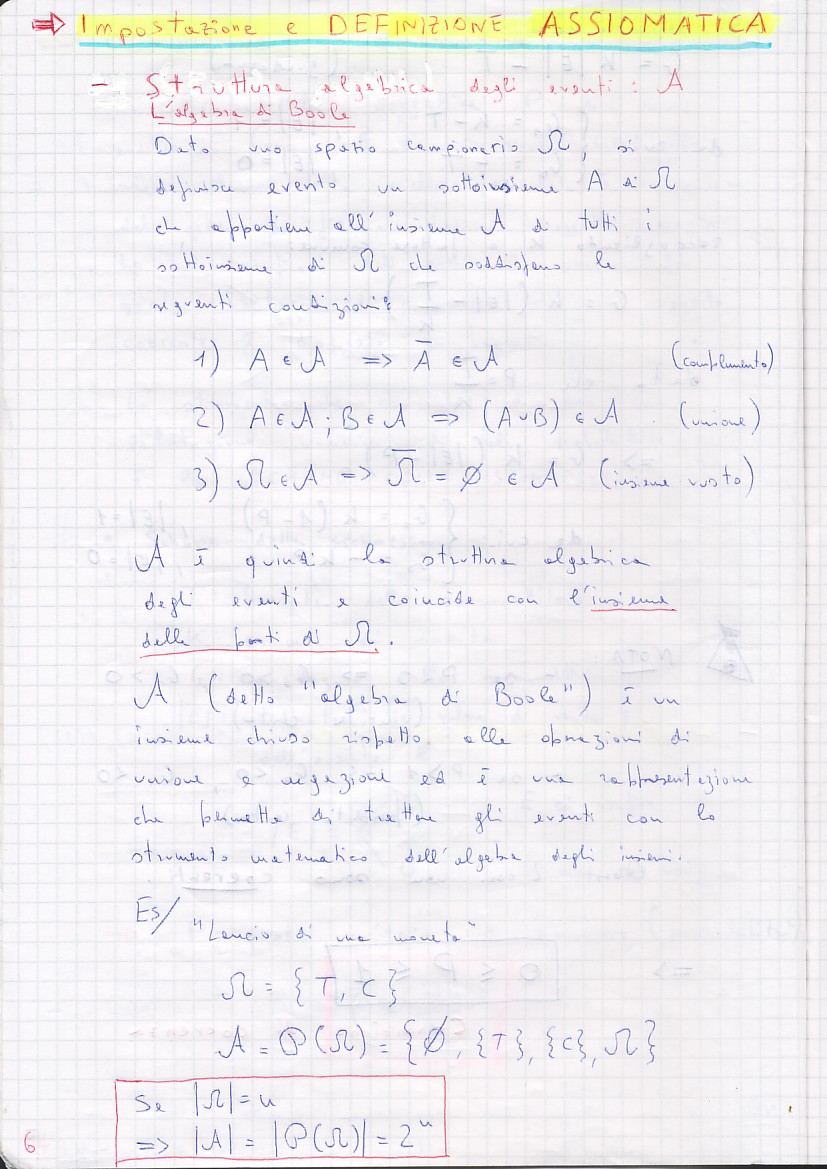 ⇒ Impostazione e DEFINIZIONE ASSIOMATICA
- Struttura algebrica degli eventi: 𝒜
L'algebra di Boole
Dato uno spazio campionario Ω, si
definisce evento un sottoinsieme A di Ω
che appartiene all'insieme 𝒜 di tutti i
sottoinsieme di Ω che soddisfano le
seguenti condizioni:
1) A ∈ 𝒜 => A̅ ∈ 𝒜 (complemento)
2) A ∈ 𝒜 ; B ∈ 𝒜 => (A∪B) ∈ 𝒜 (unione)
3) Ω ∈ 𝒜 => Ω̅ = ∅ ∈ 𝒜 (insieme vuoto)
𝒜 è quindi la struttura algebrica
degli eventi e coincide con l'insieme
delle parti di Ω.
𝒜 (detto "algebra di Boole") è un
insieme chiuso rispetto alle operazioni di
unione e negazione ed è una rappresentazione
che permette di trattare gli eventi con lo
strumento matematico dell'algebra degli insiemi.
Es/ "Lancio di una moneta"
Ω = {T, C}
𝒜 = 𝒫(Ω) = {∅, {T}, {C}, Ω}
Se |Ω| = n
=> |𝒜| = |𝒫(Ω)| = 2ⁿ
6